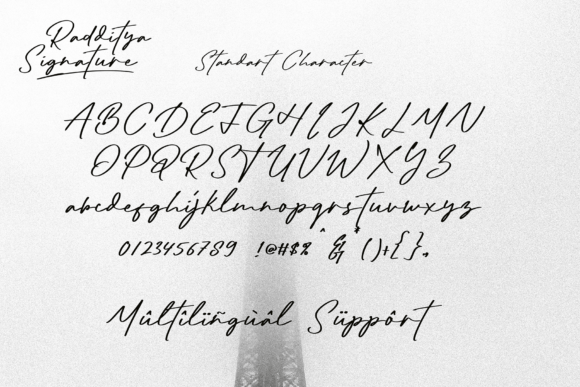 Radditya
Signature
Standart Character
ABCDEFGHIJKLMN
OPQRSTUVWXYZ
abcdefghijklmnopqrstuvwxyz
0123456789 !@#$%^&*()+{},
Mûltîlïñgùâl Süppôrt